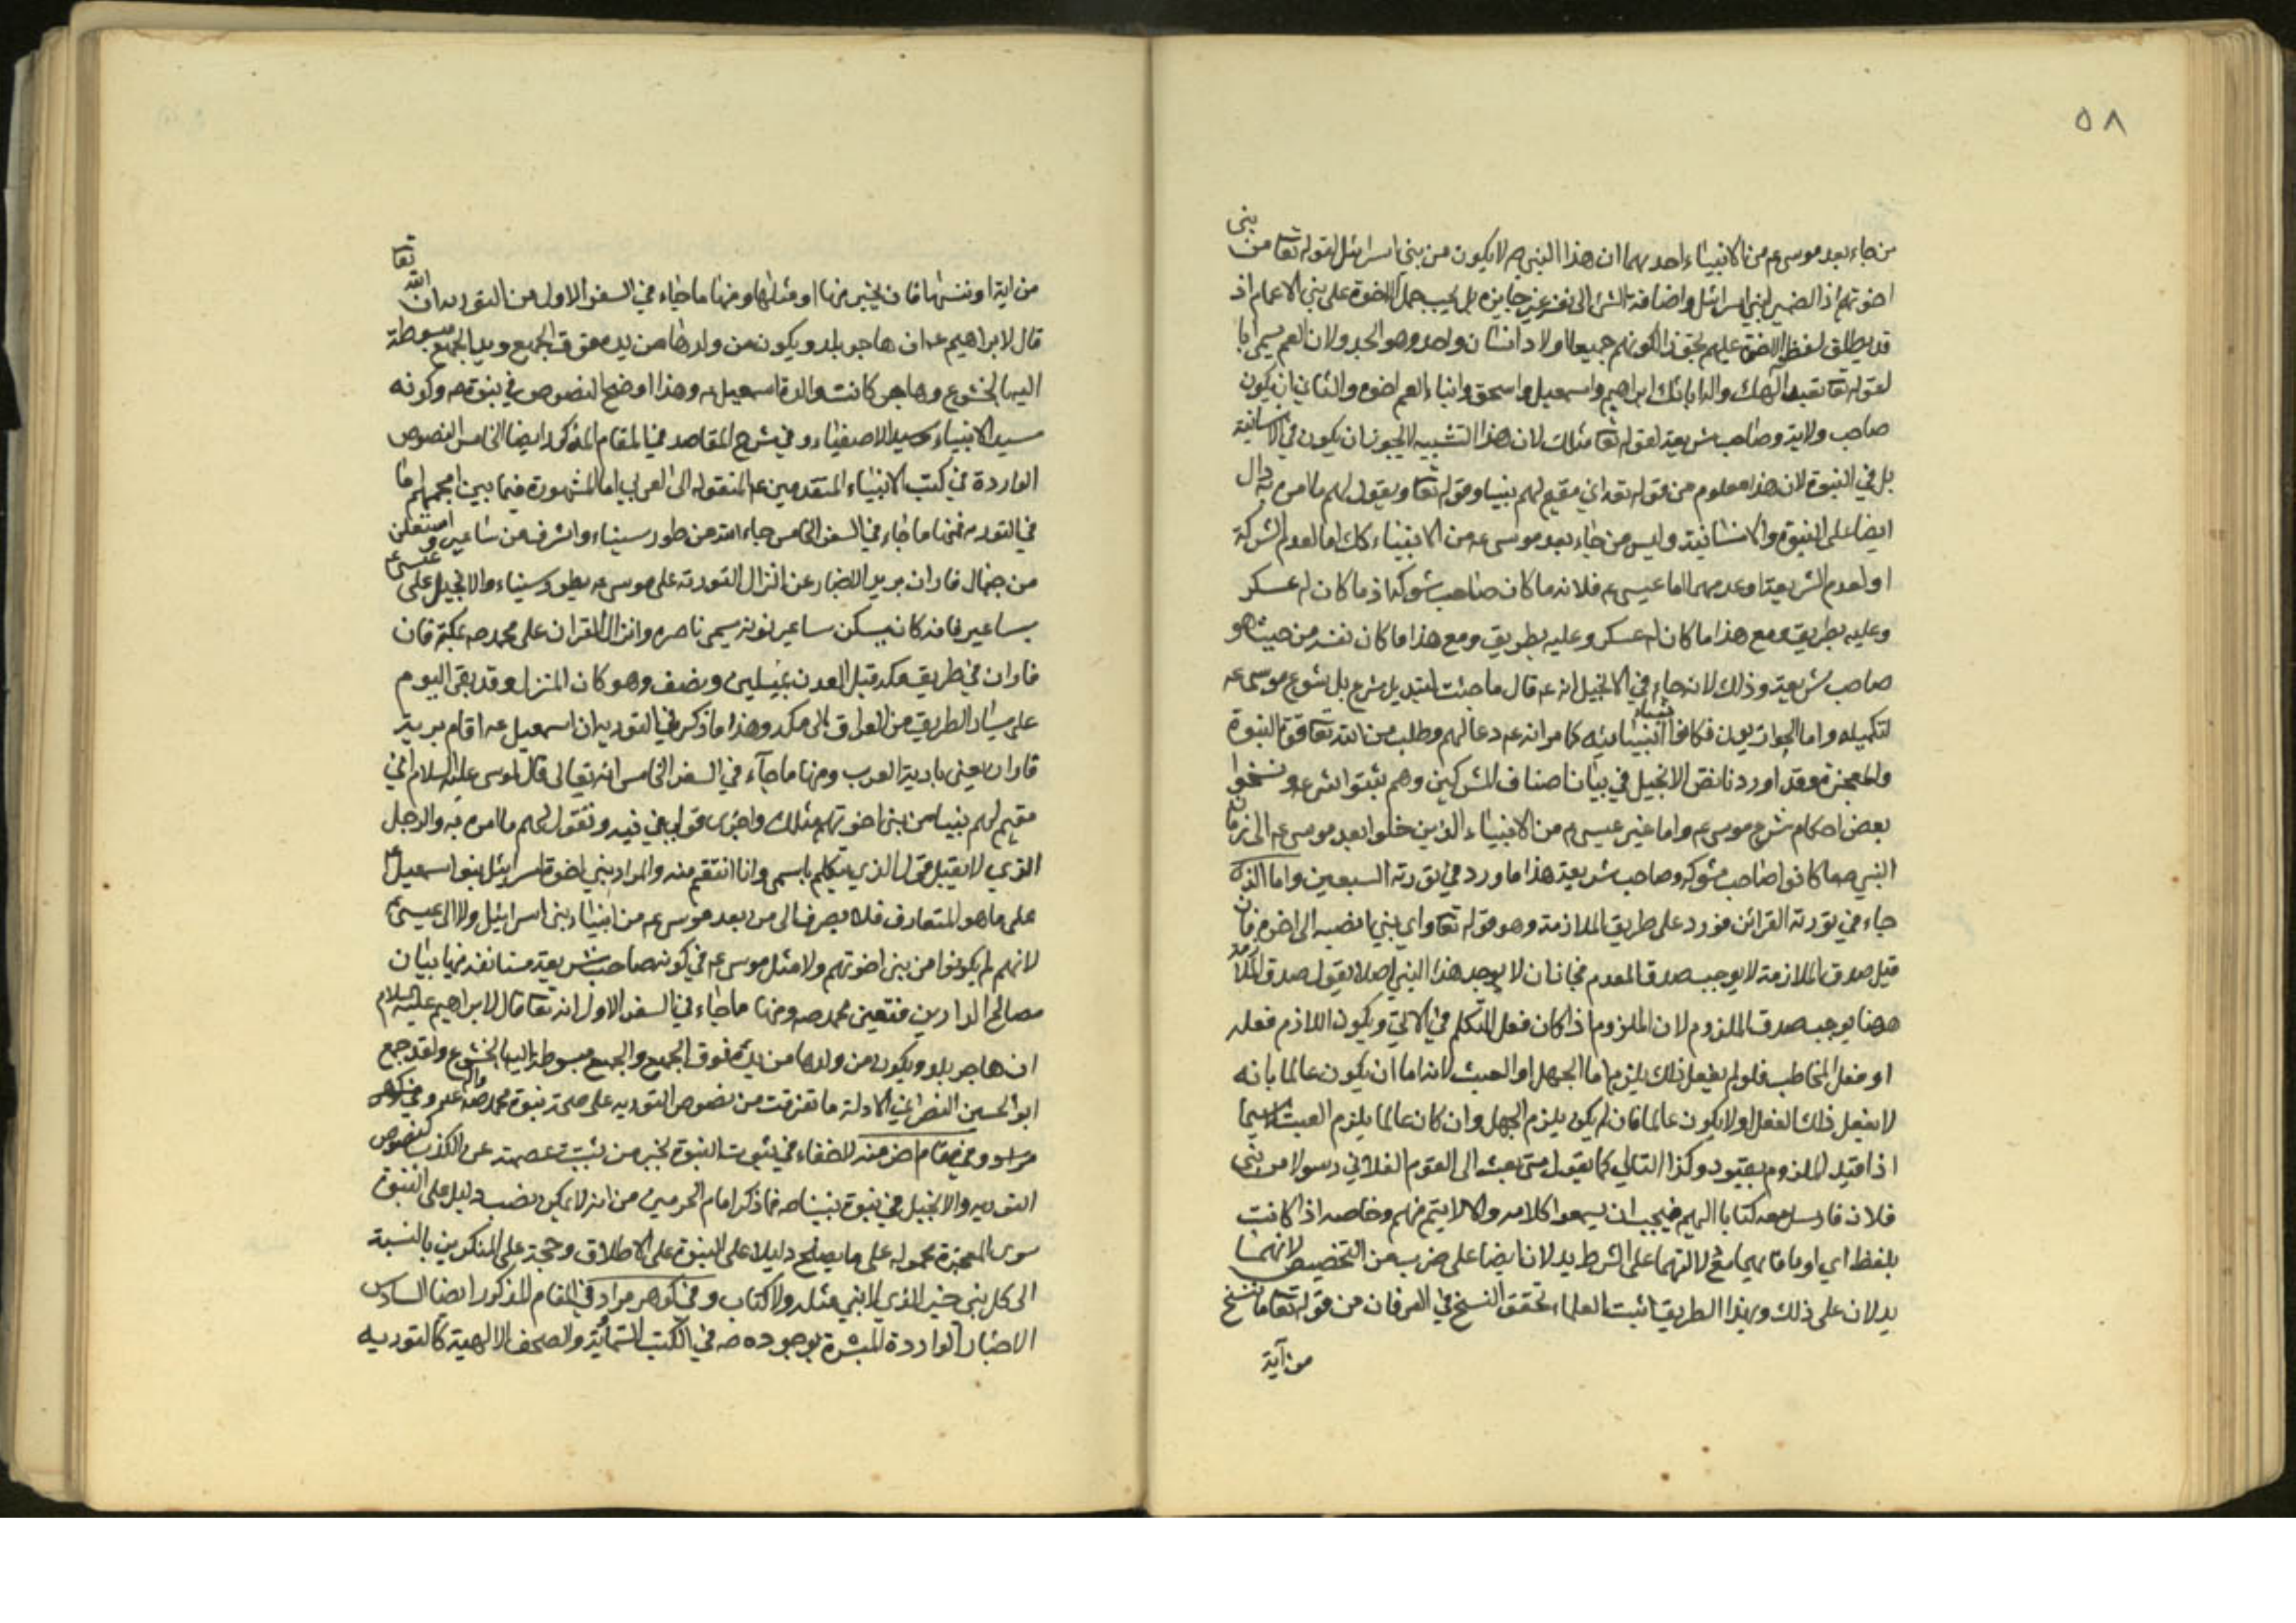 ٥٨
من جاء بعد موسى عم من الانبياء احديهما ان هذا النبي صم لا يكون من بني اسرائيل لقوله تعا من بني
اخوتهم اذ الضمير لبني اسرائيل واضافة الشئ الى نفسه غير جايزة بل يجب حمل الاخوة على بني الاعمام اذ
قد يطلق لفظ الاخوة عليهم تجوزا لكونهم جميعا اولاد انسان واحد وهو الجد ولان العم يسمى ابا
لقوله تعا نعبد الهك واله ابائك ابراهيم واسمعيل واسحق وابناء العم اخوة والثاني ان يكون
صاحب ولاية وصاحب شريعة لقوله تعا مثلك لان هذا التشبيه لا يجوز ان يكون في الانسانية
بل في النبوة لان هذا معلوم من قوله تعه اني مقيم لهم نبيا وقوله تعا ويقول لهم ما امره به دال
ايضا على النبوة والانسانية وليس من جاء بعد موسى عه من الانبياء كك اما لعدم الشركة
او لعدم الشريعة او عدمهما اما عيسى عم فلانه ما كان صاحب شوكة اذ ما كان له عسكر
وعليه بطريق ومع هذا ما كان له عسكر وعليه بطريق ومع هذا ما كان نفسه من حيث هو
صاحب شريعة وذلك لانه جاء في الانجيل انه عه قال ما جئت لتبديل شرع بل شرع موسى عه
لتكميله واما الحواريون فكانوا انبياء كامر انه عم دعا لهم وطلب من الله تعا قوة النبوة
والمعجزة وقد اوردنا نص الانجيل في بيان اصناف المشركين وهم بثقوا شرعه ونسخوا
بعض احكام شرع موسى عم واما غير عيسى عم من الانبياء الذين خلوا بعد موسى عه الى زمان
النبي صم ما كانوا صاحب شوكة وصاحب شريعة هذا ما ورد في تورية السبعين واما الذي
جاء في تورية القرائن فورد على طريق الملازمة وهو قوله تعا واي نبي انصبه الى اخره فان
قيل صدق الملازمة لا يوجب صدق المقدم فجاز ان لا يوجد هذا النبي اصلا يقول صدق الملازمة
ههنا يوجب صدق الملزوم لان الملزوم اذا كان فعل المتكلم في الاتي ويكون اللازم فعله
او فعل المخاطب فلو لم يفعل ذلك يلزم اما الجهل او العبث لانه اما ان يكون عالما بانه
لا يفعل ذلك الفعل او لا يكون عالما فان لم يكن يلزم الجهل وان كان عالما يلزم العبث لا سيما
اذا قيد الملزوم بقيود وكذا التالي كما يقول متى بعث الى القوم الفلاني رسولا من بني
فلان فارسل معه كتابا اليهم فيجب ان يسمعوا كلامه والا لا يتم منهم وخاصه اذا كانت
بلفظ اي او ما فانهما مع دلالتهما على الشرط يدلان ايضا على ضرب من التخصيص لانهما
يدلان على ذلك وبهذا الطريق اثبت العلماء تحقق النسخ في الفرقان من قوله تعا ما ننسخ
من آية
من اية او ننسها فات بخير منها او مثلها ومنها ما جاء في السفر الاول من التورية ان الله تعا
قال لابراهيم عه ان هاجر يلد ويكون من ولدها من يده فوق الجميع ويد الجميع مبسوطة
اليه بالخشوع وهاجر كانت والدة اسمعيل عه وهذا اوضح النصوص في نبوته صم وكونه
سيد الانبياء وسيد الاصفياء وفي شرح المقاصد في المقام المذكور ايضا الخامس النصوص
الواردة في كتب الانبياء المتقدمين عه المنقوله الى العربي المشهورة فيما بين اممهم اما
في التورية فمنها ما جاء في السفر الخامس جاء الله من طور سيناء واشرف من ساعير واستعلن
من جبال فاران يريد الاخبار عن انزال التورية على موسى عه بطور سيناء والانجيل على عيسى عم
بساعير فانه كان يسكن ساعير بقرية يسمى ناصره وانزال القران على محمد صم بمكة فان
فاران في طريق مكة قبل العدن بميلين ونصف وهو كان المنزل وقد بقي اليوم
على يسار الطريق من العراق الى مكه وهذا ما ذكر في التورية ان اسمعيل عه اقام برية
فاران يعني بادية العرب ومنها ما جآء في السفر الخامس انه تعالى قال لموسى عليه السلام اني
مقيم لهم نبيا من بني اخوتهم مثلك واجرى قولي في فيه ونقول لهم ما امره به والرجل
الذي لا يقبل قول الذي يتكلم باسمي وانا انتقم منه والمراد ببني اخوة اسرائيل بنو اسمعيل عم
على ما هو المتعارف فلا يصرف الى من بعد موسى عه من انبياء بني اسرائيل ولا الى عيسى عم
لانهم لم يكونوا من بني اخوتهم ولا مثل موسى عه في كونه صاحب شريعة مستانفه فيها بيان
مصالح الدارين فتعين محمد صه ومنها ما جاء في السفر الاول انه تعا قال لابراهيم عليه السلام
ان هاجر يلد ويكون من ولدها من يده فوق الجميع والجميع مبسوطة اليه بالخشوع ولقد جمع
ابو الحسين النصراني الادلة ما تفرقت من نصوص التورية على صحة نبوة محمد صم والله اعلم وفي كوهر
مراد وفي مقام اخر منه لا خفاء في ثبوت النبوة بخبر من يثبت عصمته عن الكذب كنصوص
التورية والانجيل في نبوة نبينا صم فما ذكر امام الحرمين من انه لا يمكن نصب دليل على النبوة
سوى المعجزة محمول على ما يصلح دليلا على النبوة على الاطلاق وحجة على المنكرين بالنسبة
الى كل نبي حتى الذي لا نبي مثله ولا كتاب وفي كوهر مراد في المقام المذكور ايضا السادس
الاخبار الواردة المبشرة بوجوده صه في الكتب السماوية والصحف الالهية كالتورية